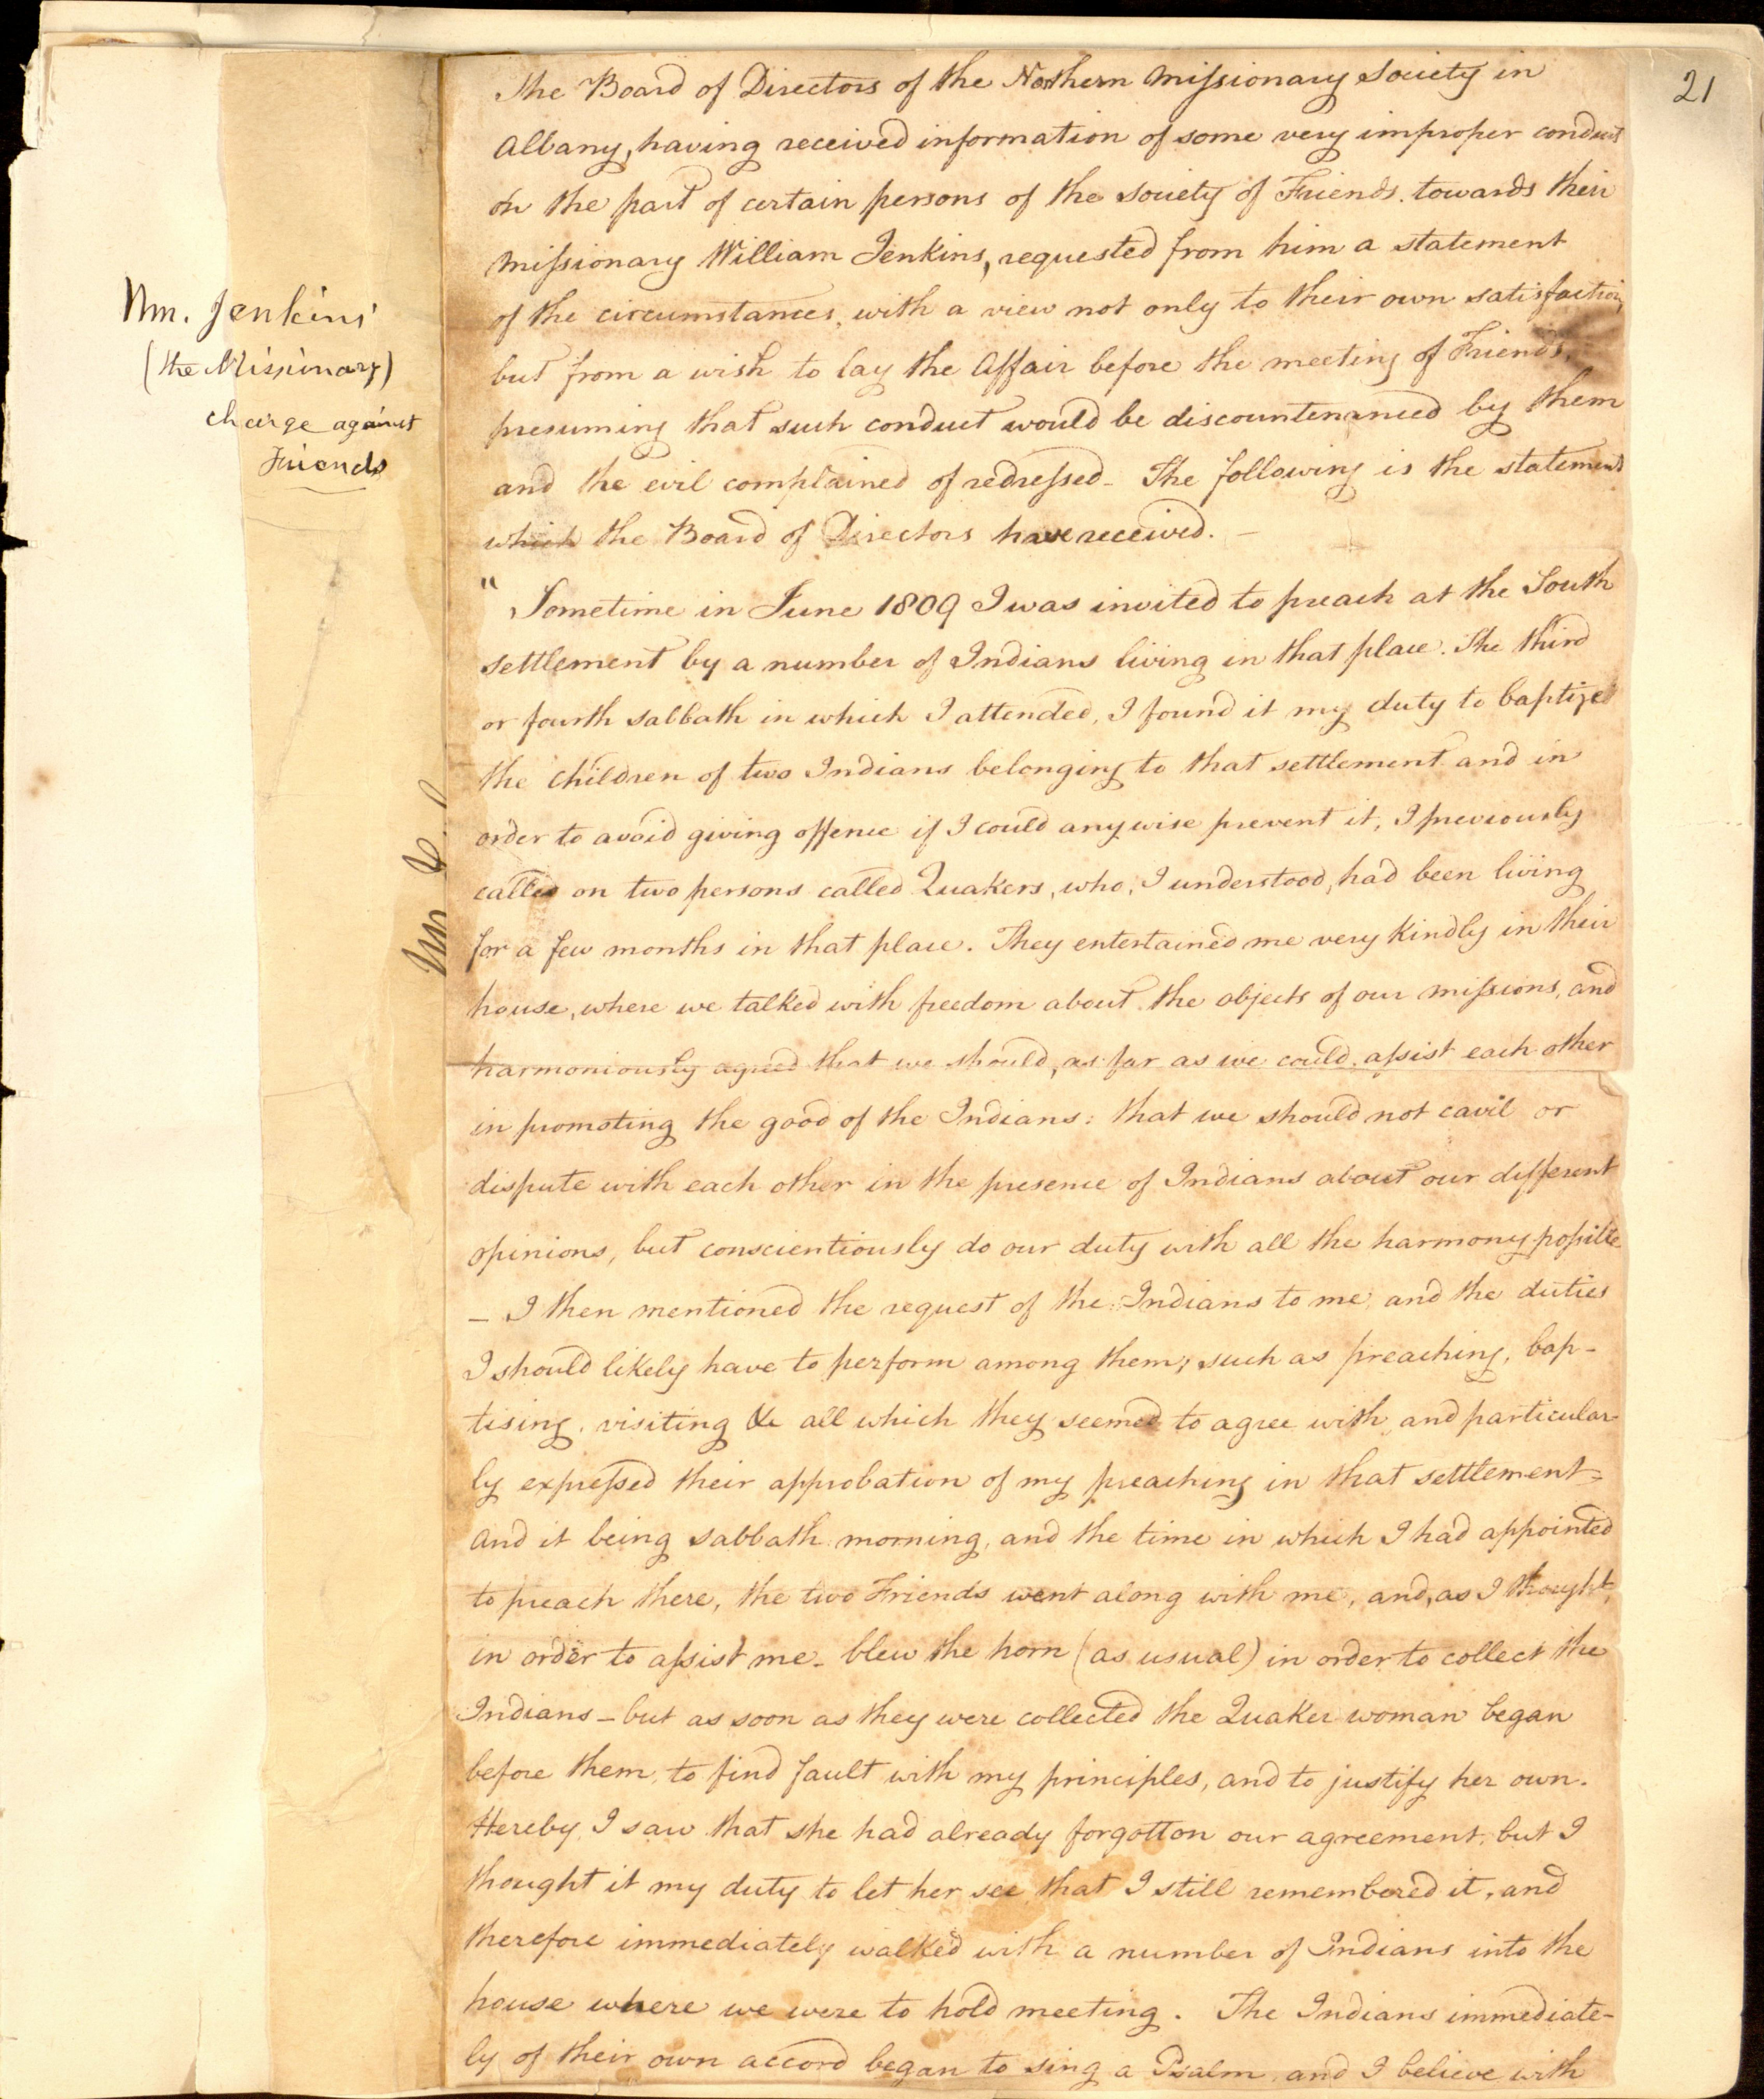 21
Wm. Jenkins'
(the Missionary)
charge against
Friends
The Board of Directors of the Northern Missionary Society in
Albany, having received information of some very improper conduct
on the part of certain persons of the Society of Friends towards their
Missionary William Jenkins, requested from him a statement
of the circumstances, with a view not only to their own satisfaction,
but from a wish to lay the Affair before the meeting of Friends,
presuming that such conduct would be discountenanced by them
and the evil complained of redressed - The following is the statement
which the Board of Directors have received. -
" Sometime in June 1809 I was invited to preach at the South
settlement by a number of Indians living in that place. The third
or fourth sabbath in which I attended, I found it my duty to baptize
the children of two Indians belonging to that settlement and in
order to avoid giving offence if I could anywise prevent it, I previously
called on two persons called Quakers, who, I understood, had been living
for a few months in that place. They entertained me very kindly in their
house, where we talked with freedom about the objects of our missions, and
harmoniously agreed that we should, as far as we could, assist each other
in promoting the good of the Indians: that we should not cavil or
dispute with each other in the presence of Indians about our different
opinions, but conscientiously do our duty with all the harmony possible
- I then mentioned the request of the Indians to me, and the duties
I should likely have to perform among them; such as preaching, bap-
tising, visiting &c all which they seemed to agree with, and particular-
ly expressed their approbation of my preaching in that settlement -
And it being sabbath morning, and the time in which I had appointed
to preach there, the two Friends went along with me, and, as I thought,
in order to assist me - blew the horn (as usual) in order to collect the
Indians - but as soon as they were collected the Quaker woman began
before them, to find fault with my principles, and to justify her own.
Hereby I saw that she had already forgotton our agreement, but I
thought it my duty to let her see that I still remembered it, and
therefore immediately walked with a number of Indians into the
house where we were to hold meeting. The Indians immediate-
ly of their own accord began to sing a Psalm, and I believe with